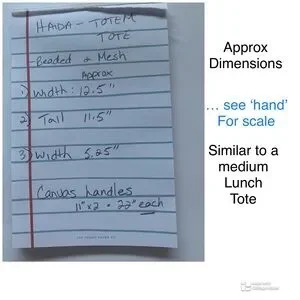 HAIDA - TOTEM
TOTE
Beaded & Mesh
Approx
1) Width: 12.5"
2) Tall 11.5"
3) Width 5.25"
Canvas handles
11" x 2 = 22" each
Approx
Dimensions
... see 'hand'
For scale
Similar to a
medium
Lunch
Tote